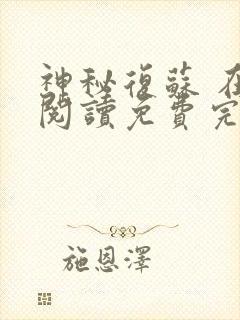 神秘復蘇 在
閱讀免費完
施恩澤